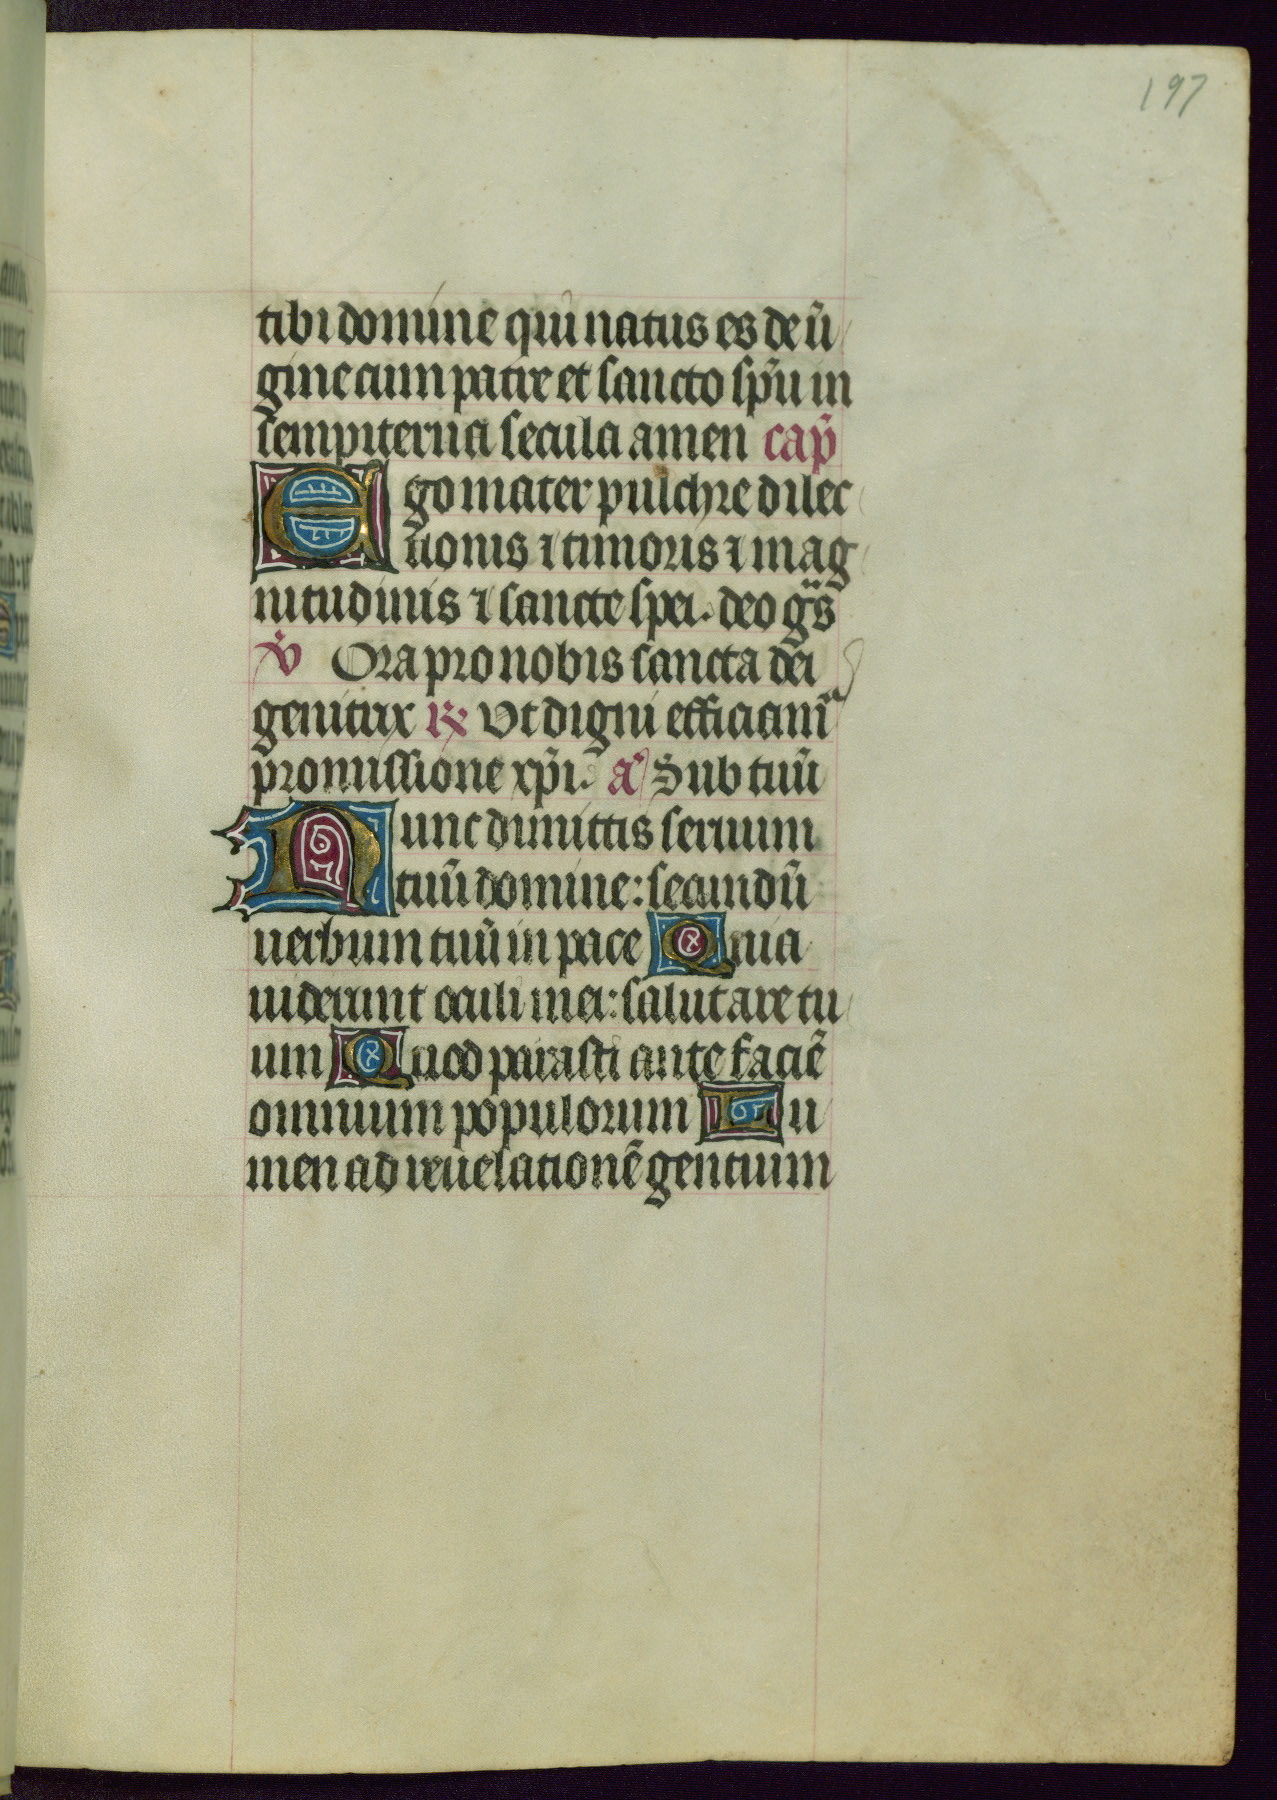 197
tibi domine qui natus es de ũ
gine cum patre et sancto sp̃u in
sempiterna secula amen cap̃
Ego mater pulchre dilec
tionis ⁊ timoris ⁊ mag
nitudinis ⁊ sancte spei. deo gr̃s
v̇ Ora pro nobis sancta dei
genitrix ℟ Vt digni efficiamr̃
promissione xp̃i. a᷒ Sub tuũ
Nunc dimittis seruum
tuũ domine: secundũ
uerbum tuũ in pace Quia
uiderunt oculi mei: salutare tu
um Quod parasti ante faciẽ
omnium populorum Lu
men ad reuelationẽ gentium